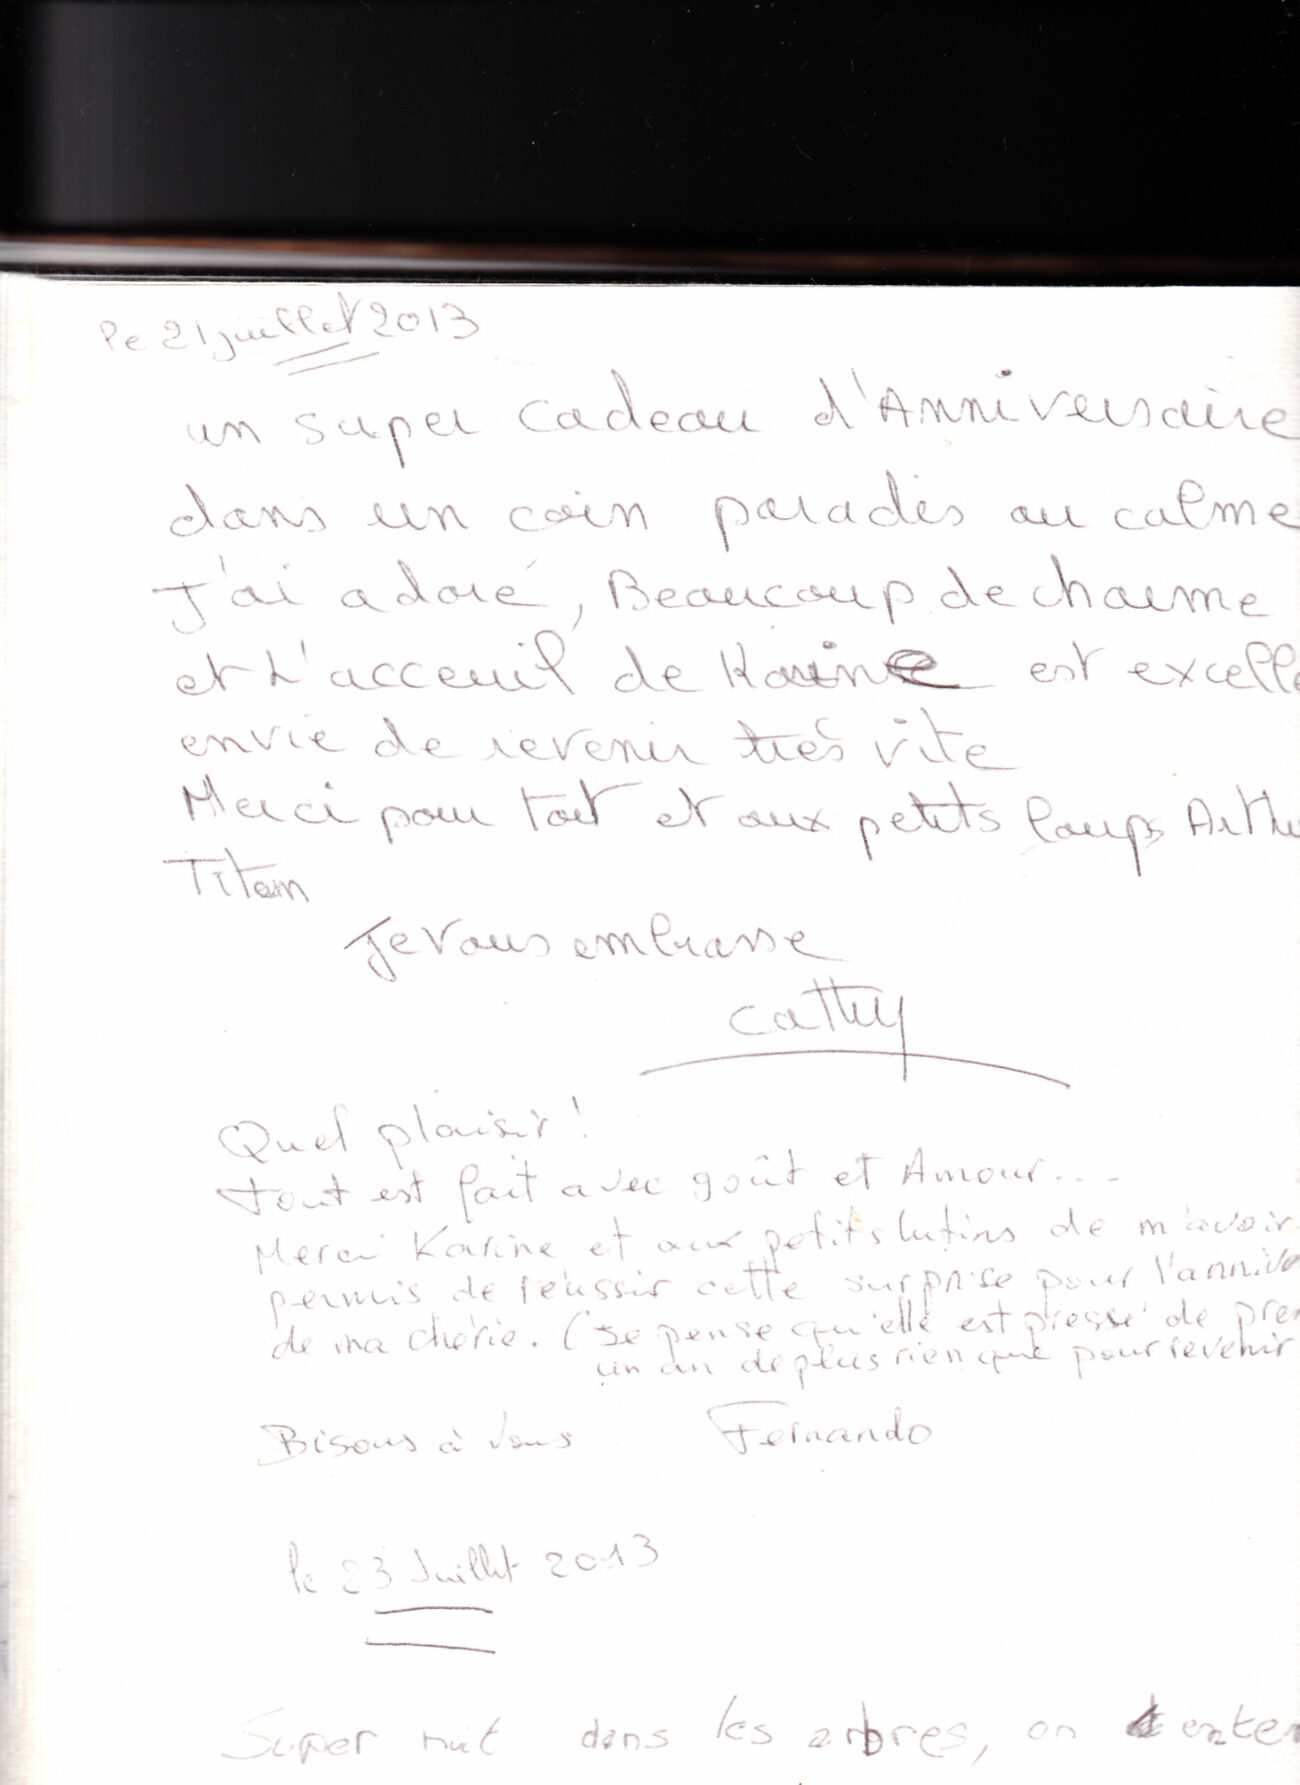 le 21 juillet 2013
un super cadeau d'Anniversaire
dans un coin paradis au calme
J'ai adoré, Beaucoup de charme
et L'acceuil de Karine est excelle
envie de revenir très vite
Merci pour tout et aux petits loups Arthu
Titom
Je vous embrasse
Cathy
Quel plaisir !
Tout est fait avec goût et Amour...
Merci Karine et aux petits lutins de m'avoir
permis de réussir cette surprise pour l'anniv
de ma chérie. (Je pense qu'elle est pressé de pren
un an de plus rien que pour revenir
Bisous à vous Fernando
le 23 Juillet 2013
Super nuit dans les arbres, on enten